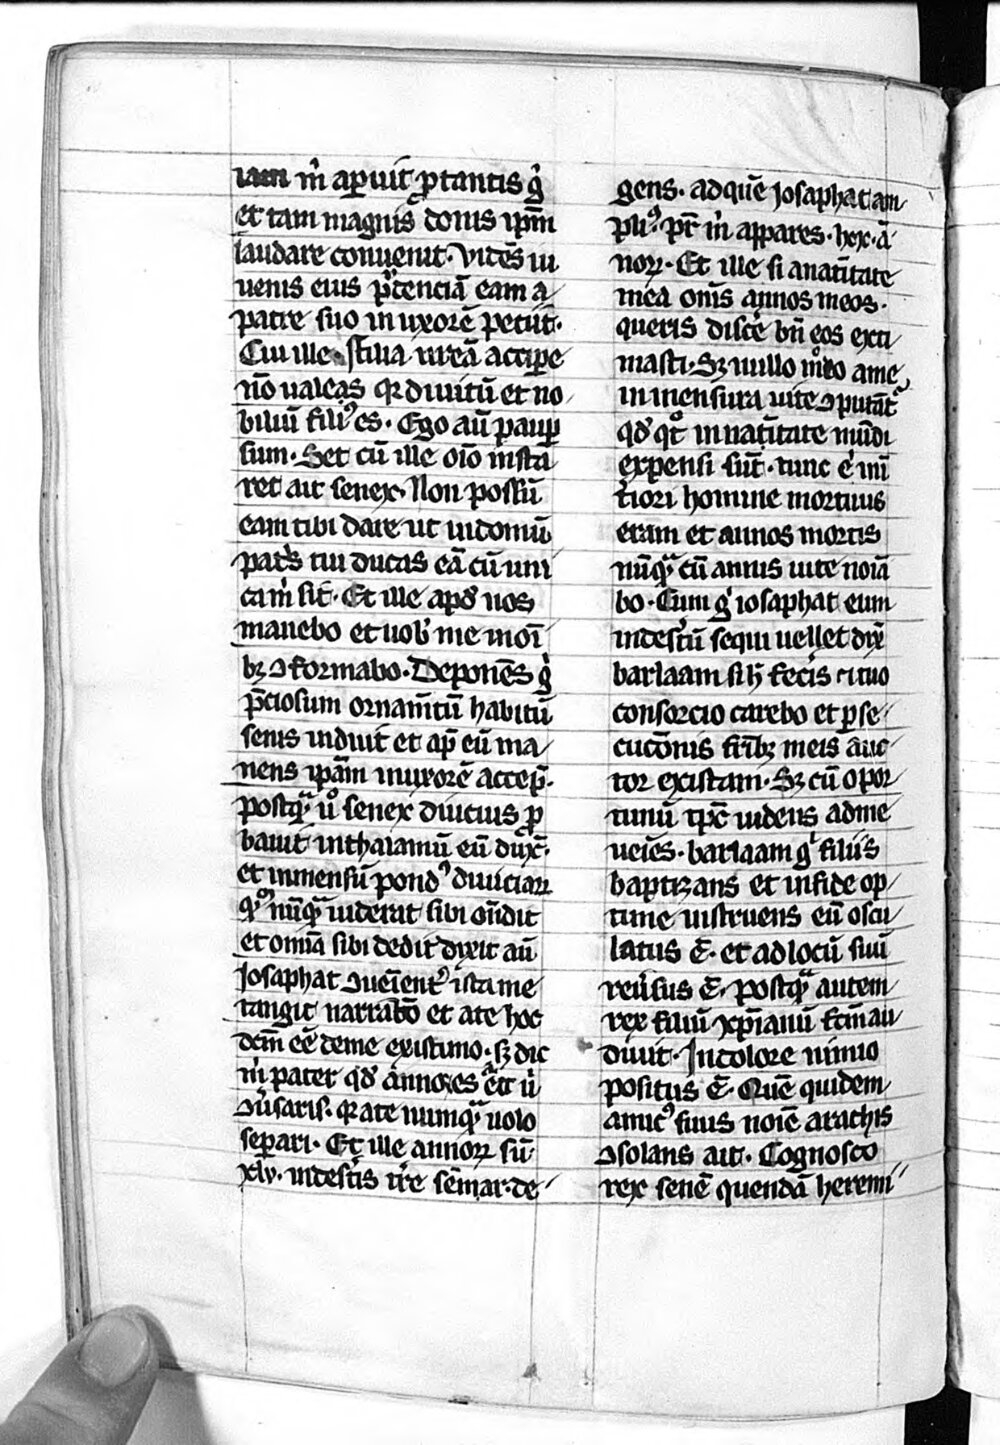 iam m̄ aperuit ꝓ tantis g̊
et tam magnis donis ip̄m
laudare conuenit. Videns iu
uenis eius prudenciā eam a
patre suo in uxorē petiit.
Cui ille filia meā accipe
nō ualeas qr diuitū et no
biliū filiꝰ es. Ego aū pauꝑ
sum. Set cū ille oīo insta
ret ait senex. Non possū
eam tibi dare ut in domū
pat̄s tui ducas eā cū uni
ca m̄ sit. Et ille apd̄ uos
manebo et uob̄ me in oī
bꝫ ↄformabo. Deponēs g̊
p̄ciosum ornam̄tū habitū
senis induit et ap̄ eū ma
nens ip̄am in uxorē accep̄.
postqͣ ů senex diucius ꝓ
bauit in thalamū eū dux̄.
et inmensū pondꝰ diuiciaꝝ
qͦs nūqͣ uiderat sibi on̄dit
et omīa sibi dedit dixit aū
Josaphat ↄueīentꝰ ista me
tangit narratō et a te hoc
dcm̄ eē de me existimo. sꝫ dic
m̄ pater qd̄ annoꝝ es et ubi
ↄuersaris. qr a te numqͣ uolo
separi. Et ille annoꝝ sū
xlv. in desertis tr̄e sēnaar de
gens. ad quē Josaphat am
pliꝰ pr̄ m̄ appares. lxx. ā
noꝝ. Et ille si a natīuitate
mea om̄s annos meos.
queris discē bn̄ eos exti
masti. Sꝫ nullo mͦdo a me
in mensura uite ↄputātꝰ
qd̄qͦt in uanitate mūdi
expensi sūt. tunc eī in in
t̄iori homine mortuus
eram et annos mortis
nūqͣ cū annis uite noīa
bo. Cum g̊ iosaphat eum
in desertū sequi uellet dix̄
barlaam si h̄ fecīs et tuo
consorcio carebo et ꝑse
cucōnis fr̄ibꝫ meis auc
tor existam. Sꝫ cū opor
tunū tp̄c uidens ad me
ueīes. barlaam g̊ filiū s
baptizans et in fide op
time instruens eū oscu
latus ē. et ad locū suū
reūsus ē. postqͣ autem
rex filiū xp̄ianū fc̄m au
diuit. In dolore nimio
positus ē. Quē quidem
amicꝰ suus noīe arachis
ↄsolans ait. Cognosco
rex senē quendā heremi